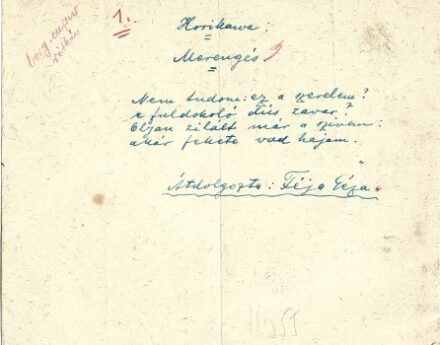 1.
Horikawa:
Merengés
Nem tudom: ez a szerelem?
E fuldokoló dús zavar?
Olyan zilált már a szivem:
akár fekete vad hajam.
Átdolgozta: Féja Géza.